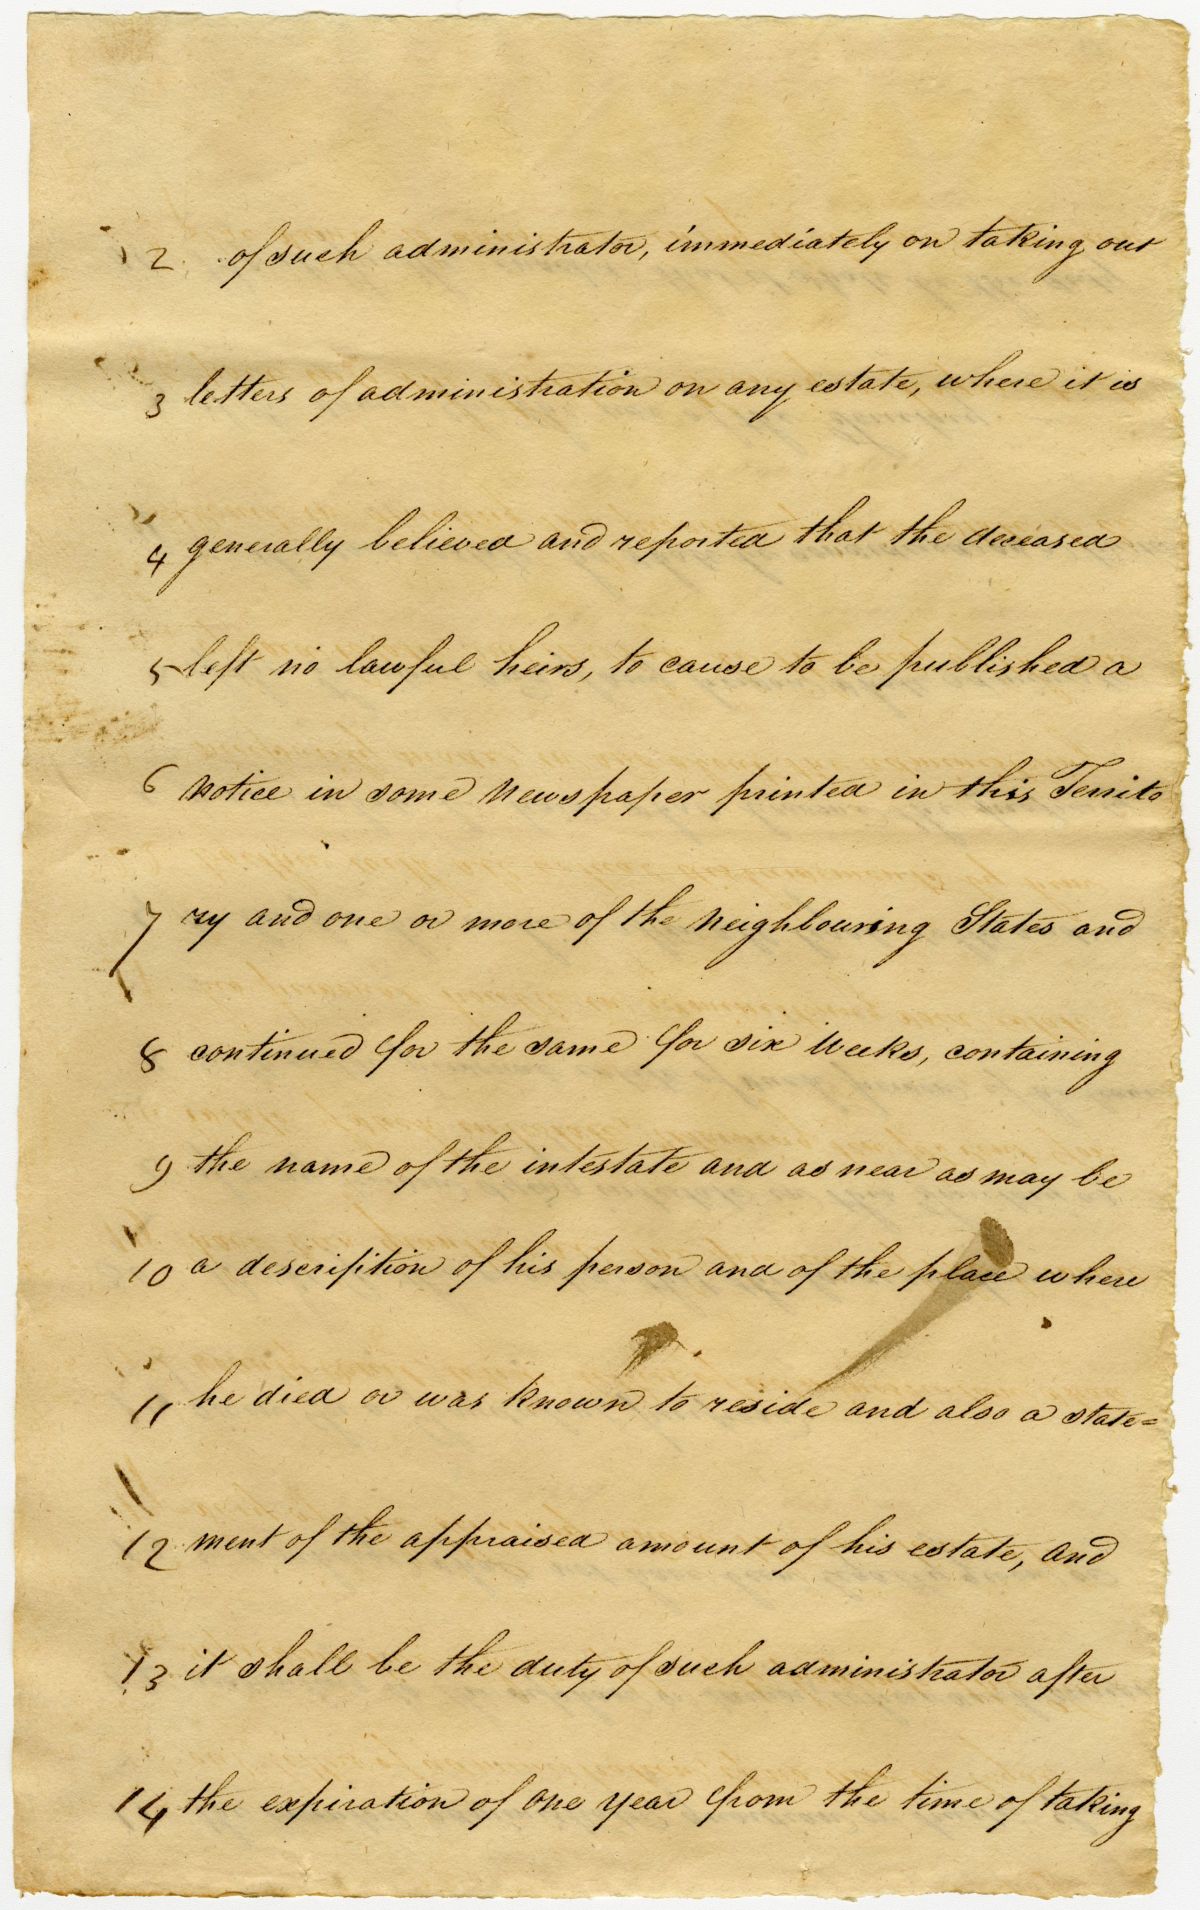 2 of such administrator, immediately on taking out
3 letters of administration on any estate, where it is
4 generally believed and reported that the deceased
5 left no lawful heirs, to cause to be published a
6 notice in some Newspaper printed in this Territo
7 ry and one or more of the Neighbouring States and
8 continued for the same for six Weeks, containing
9 the name of the intestate and as near as may be
10 a description of his person and of the place where
11 he died or was known to reside and also a state=
12 ment of the appraised amount of his estate, And
13 it shall be the duty of such administrator after
14 the expiration of One year from the time of taking